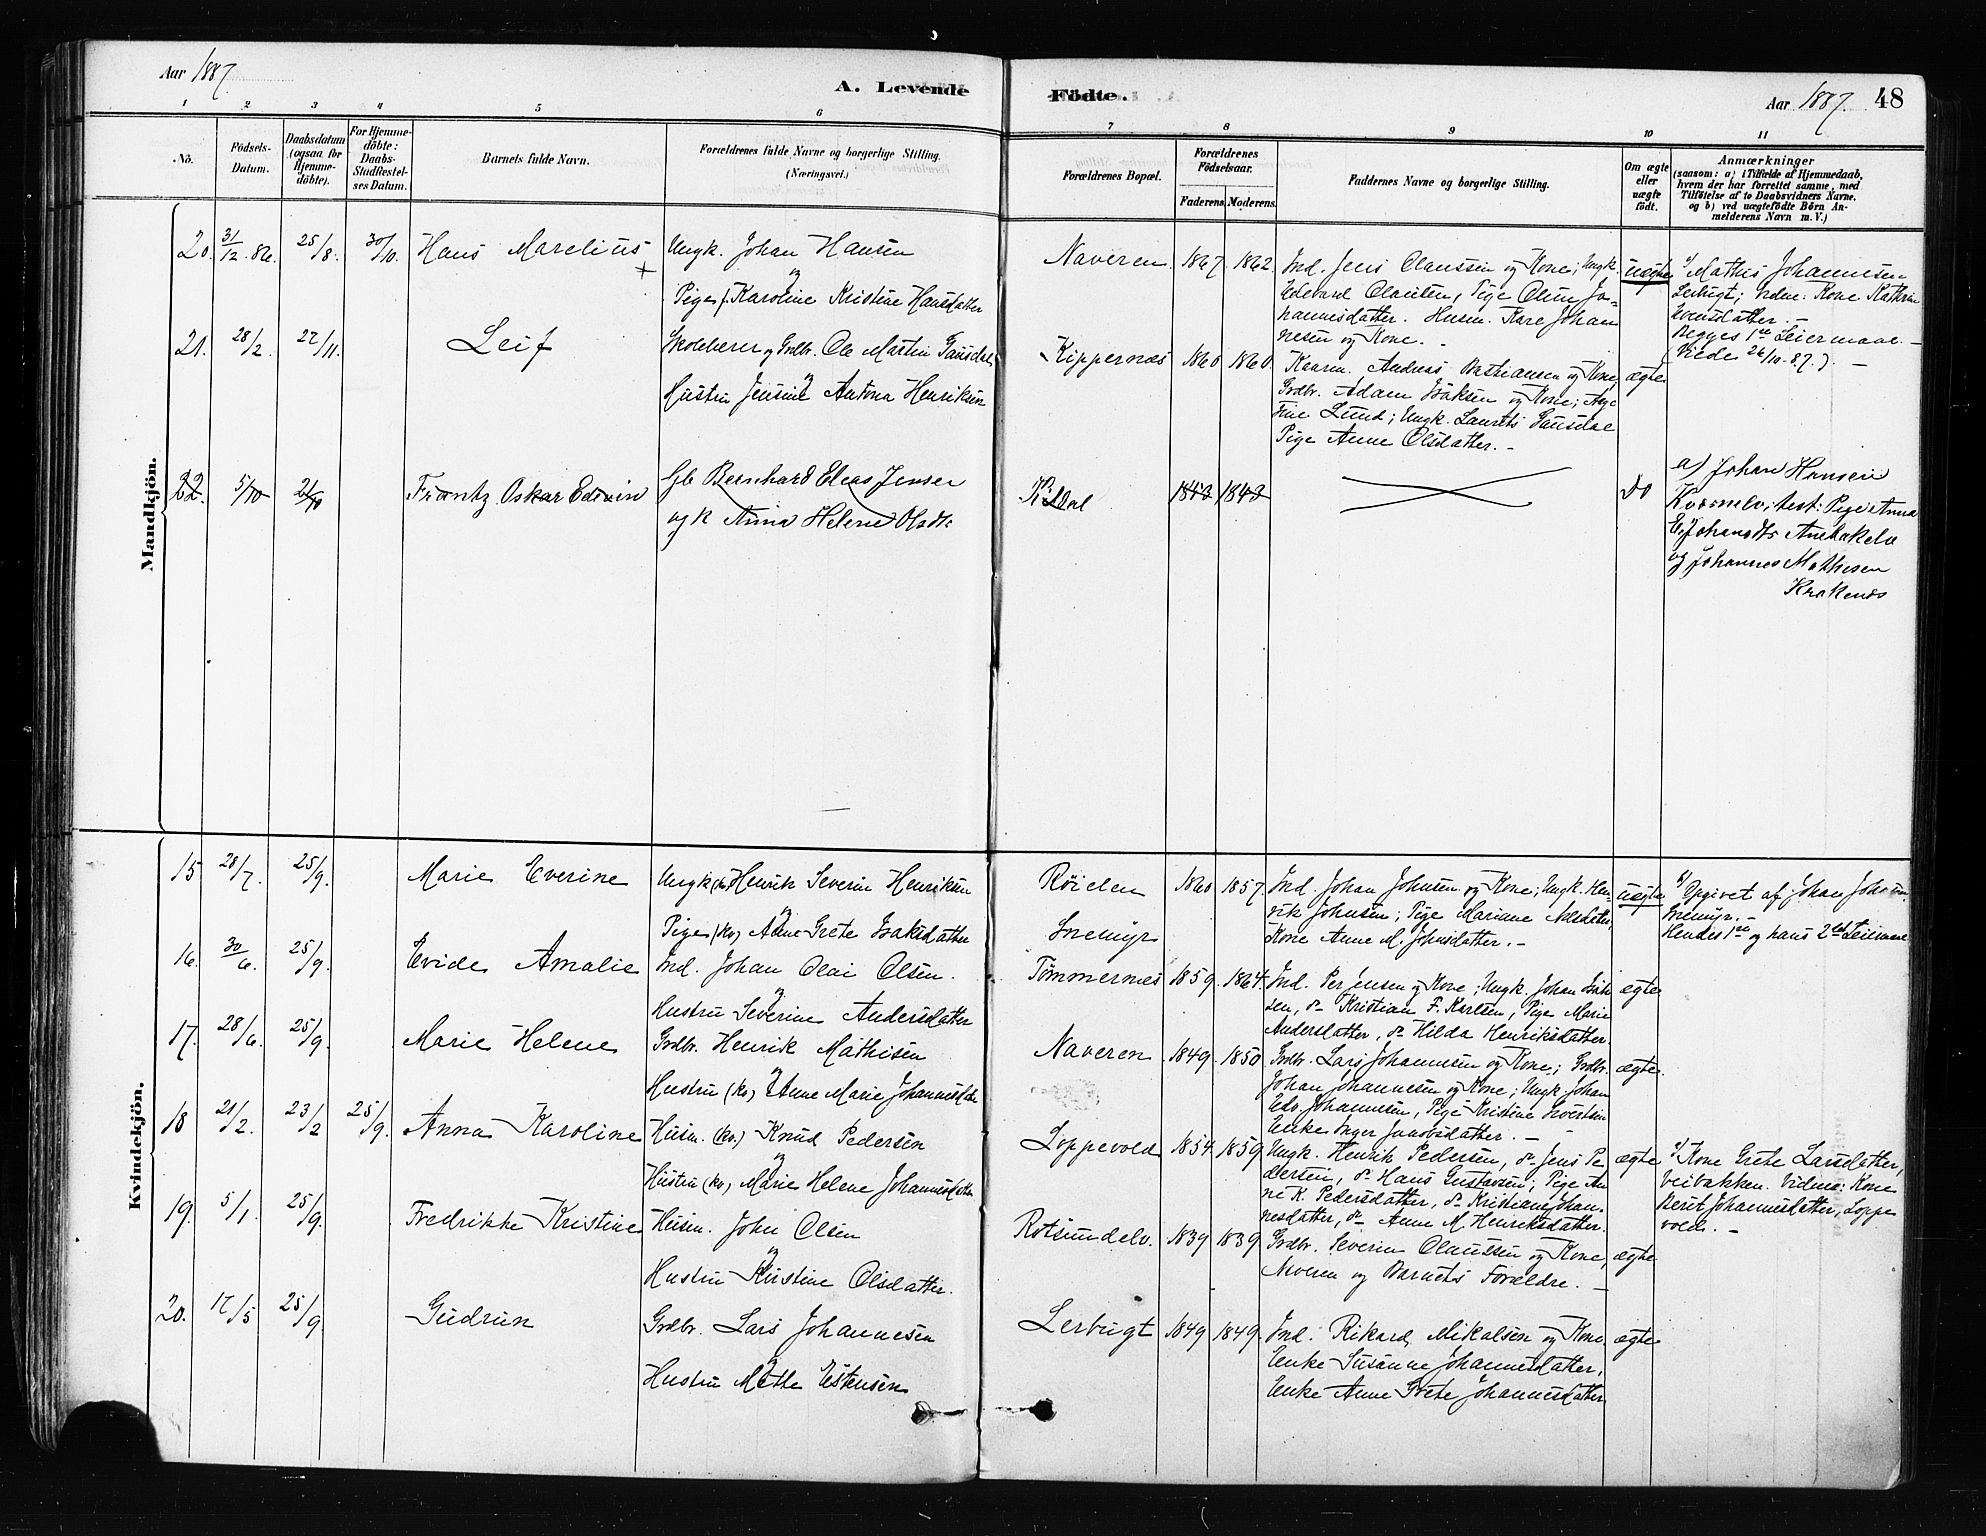 Aar 1887. A. Levende
Födte. Aar 1887. 48
1 2 3 4 5 6 7 8 9 10 11
No.
Födsels-
Datum.
Daabsdatum
(ogsaa for
Hjemme-
döbte).
For Hjemme-
döbte:
Daabs-
Stadfæstel-
ses Datum.
Barnets fulde Navn.
Forældrenes fulde Navne og borgerlige Stilling.
(Næringsvei.)
Forældrenes Bopæl.
Forældrenes
Födselsaar.
Faderens. Moderens.
Faddernes Navne og borgerlige Stilling.
Om ægte
eller
uægte
födt.
Anmærkninger
(saasom: a) i Tilfælde af Hjemmedaab,
hvem der har forrettet samme, med
Tilföielse af to Daabsvidners Navne.
og b) ved uægtefödte Börn An-
melderens Navn m. V.)
Mandkjön.
20. 31/12.86. 25/8. 30/10. Hans Marelius Ungk. Johan Hansen
og
Pige f. Karoline Kristine Hansdatter
Naveren 1867. 1862.
Ind. Jens Claussen og Kone; Ungk.
Edevard Olausen, Pige Oline Jo-
hannesdatter. Husm. Kare Johan
nesen og Kone. -
uægte
a) Mathis Johannesen
Lerbugt; Vidne: Kone Kathrine
Evensdatter. -
Begges 1ste Leiermaal. -
(Viede 26/10.87.) -
21. 28/2. 27/11. Leif Skolelærer og Grdbr. Ole Martin Gausdal
og
Hustru Jensine Antona Henriksen
Kippernæs 1860 1860.
Kaarm. Andreas Bastiansen og Kone,
Grdbr. Adam Isaksen og Kone; Aage
Fine Lund; Ungk. Laurits Gausdal
Pige Anne Olsdatter. -
ægte
22. 5/10 2/10 Frantz Oskar Edvin Gb Bernhard Eleas Jensen
og K Anna Helene Olsdtr
Kildal 1843 1843
do
a) Johan Hansen
Kvænelv; test: Pige Anna
E. Johansdtr Anebakelv
og Johannes Mathisen
Krakenes
Kvindekjön.
15. 28/7. 25/9. Marie Everine Ungk (kv.) Henrik Severin Henriksen
og
Pige (kv) Anne Grete Isaksdatter
Röielen
Snemyr
1860 1857.
Ind. Johan Johnsen og Kone; Ungk. Hen-
rik Johnsen; Pige Mariane Nilsdatter,
Kone Anne M. Johnsdatter. -
uægte
b) Opgivet af Johan Johnsen
Snemyr. -
Hendes 1ste og hans 2det Leiermaal
16. 30/6. 25/9. Evide Amalie Ind. Johan Olai Olsen.
og
Hustru Severine Andersdatter
Tömmernes 1859. 1864.
Ind. Per Jensen og Kone; Ungk. Johan Isak
sen, do Kristian F. Karlsen, Pige Marie
Andersdatter, do Hilda Henriksdatter.
ægte
17. 28/6. 25/9. Marie Helene Grdbr. Henrik Mathisen
og
Hustru (kv) Anne Marie Johannesdatter
Naveren 1849. 1850
Grdbr. Lars Johannesen og Kone; Grdbr.
Johan Johannesen og Kone; Ungk. Johan
Edv. Johannesen, Pige Kristine Evertsen
Enke Inger Jacobsdatter. -
ægte.
18 21/2. 23/2 25/9. Anna Karoline Husm. (kv.) Knud Pedersen
og
Hustru (kv) Marie Helene Johannesdatter
Loppevold 1854. 1859
Ungk. Henrik Pedersen, do Jens Pe
dersen, do Hans Gustavsen; Pige An
ne K. Pedersdatter, do Kristiane Johan-
nesdatter, do Anne M. Henriksdatter.
ægte
a) Kone Grete Larsdatter,
Veibakken. Vidne: Kone
Berit Johannesdatter, Loppe
vold. -
19. 5/1. 25/9. Fredrikke Kristine Husm. John Olsen
og
Hustru Kirstine Olsdatter.
Rotsundelv. 1839 1839
Grdbr. Severin Olaussen og Kone,
Naveren og Barnets Forældre. -
ægte
20. 17/5 25/9 Gudrun Grdbr. Lars Johannesen
og
Hustru Mette Estensen
Lerbugt 1849 1849.
Ind. Rikard Mikalsen og Kone.
Enke Susanne Johannesdatter,
Enke Anne Grete Johannesdatter
ægte